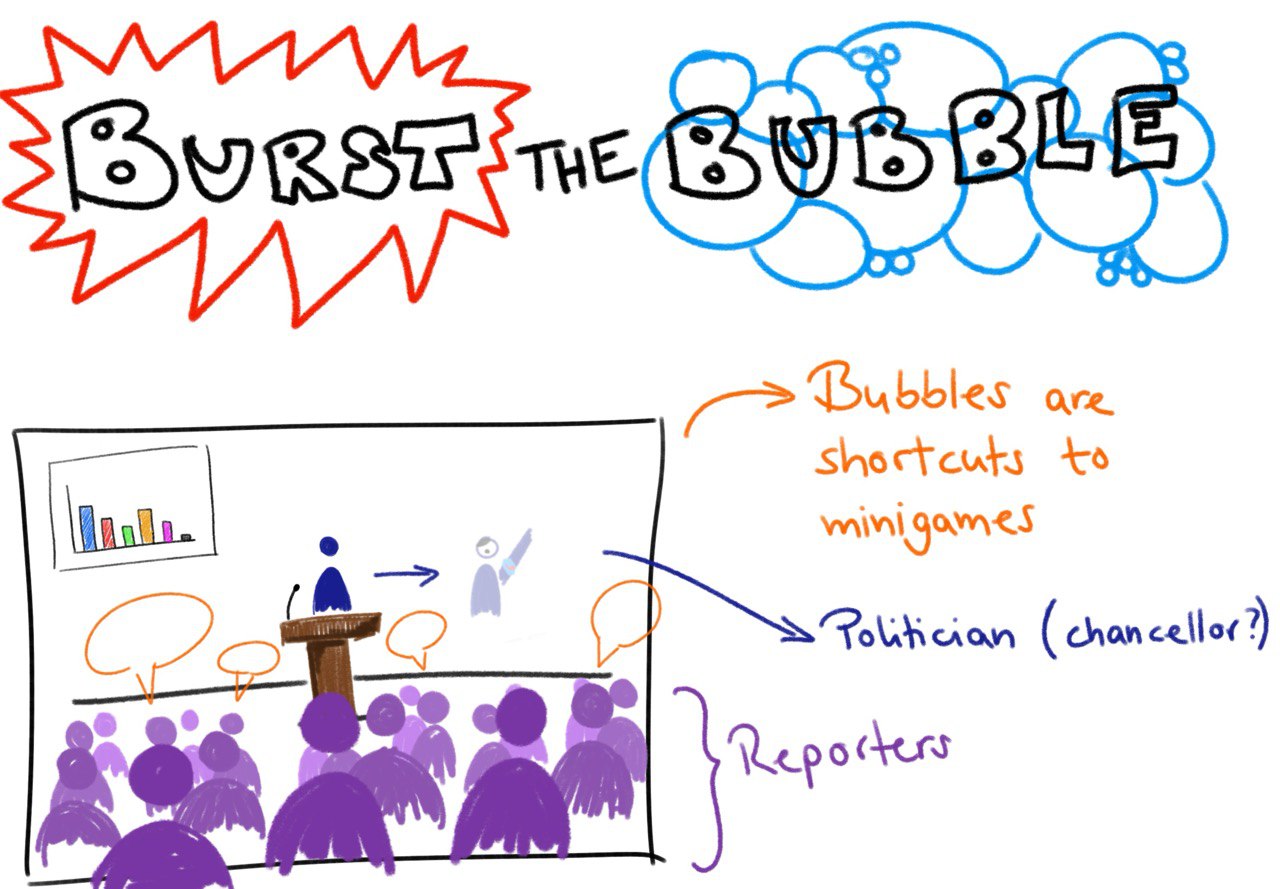 BURST THE BUBBLE
Bubbles are
shortcuts to
minigames
Politician (chancellor?)
Reporters